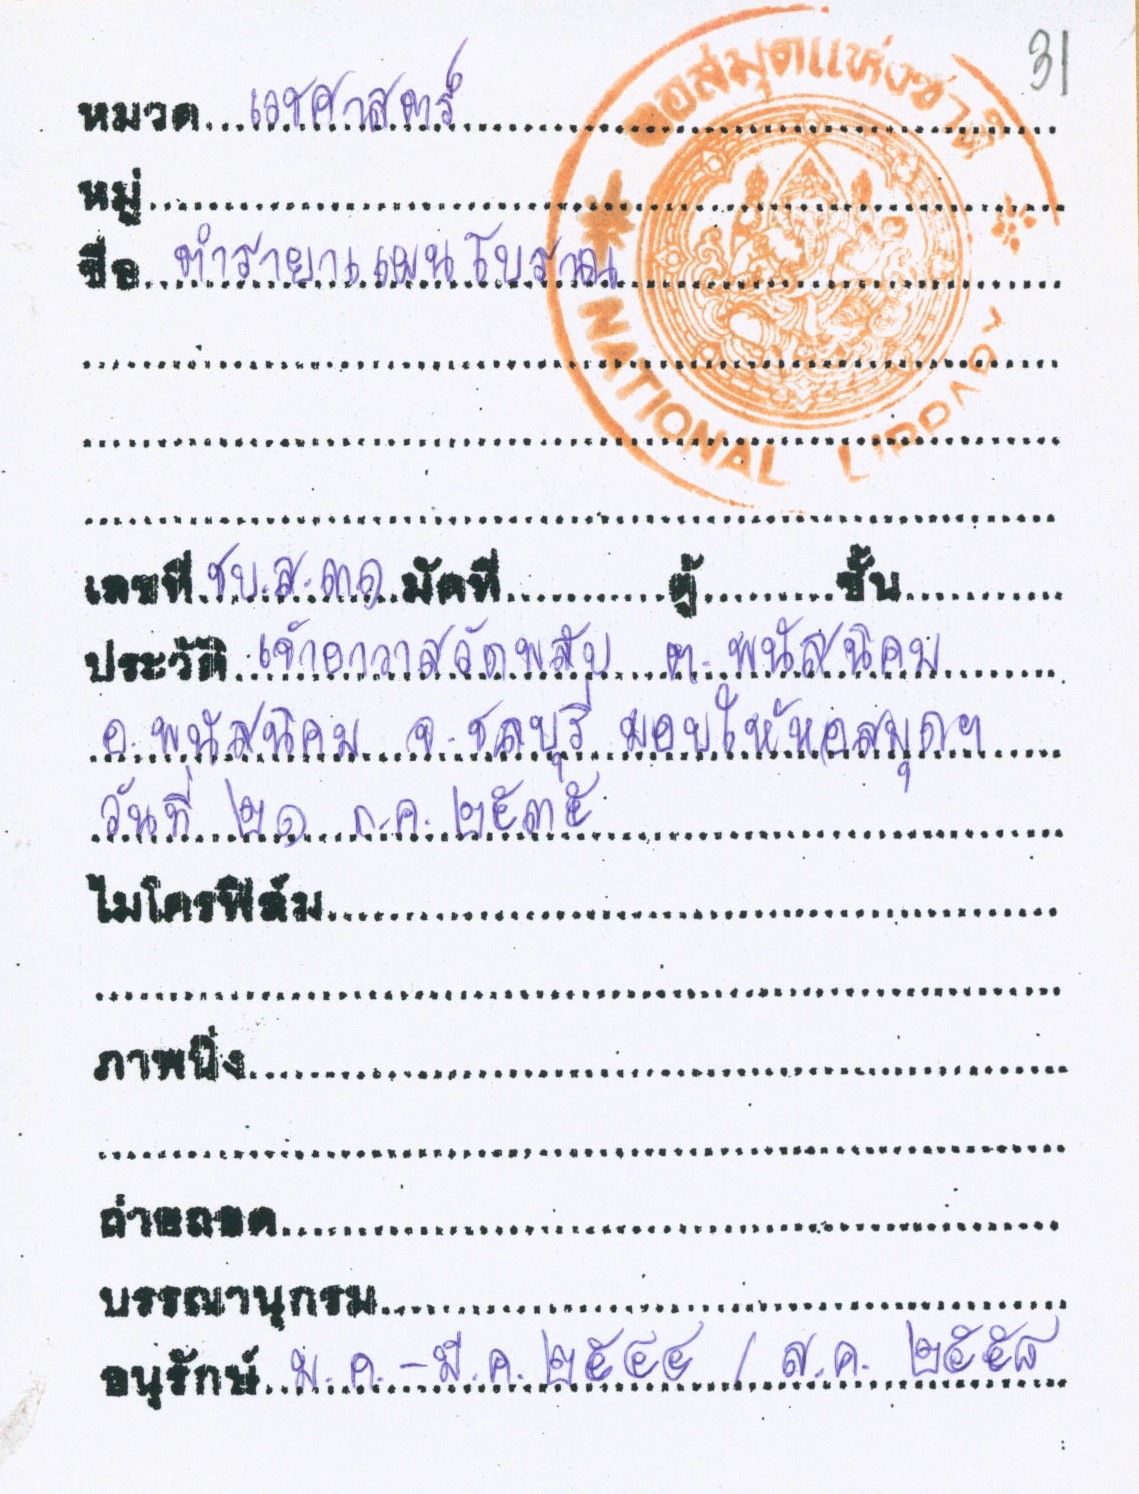 31
หอสมุดแห่งชาติ
NATIONAL LIBRARY
หมวด เวชศาสตร์
หมู่
ชื่อ ตำรายาแผนโบราณ
เลขที่ ชบ.ส.๓๑ มัดที่ ตู้ ชั้น
ประวัติ เจ้าอาวาสวัดพลับ ต.พนัสนิคม
อ.พนัสนิคม จ.ชลบุรี มอบให้หอสมุดฯ
วันที่ ๒๑ ก.ค. ๒๕๓๕
ไมโครฟิล์ม
ภาพนิ่ง
ถ่ายถอด
บรรณานุกรม
อนุรักษ์ ม.ค.-มี.ค. ๒๕๔๔ / ส.ค. ๒๕๕๘